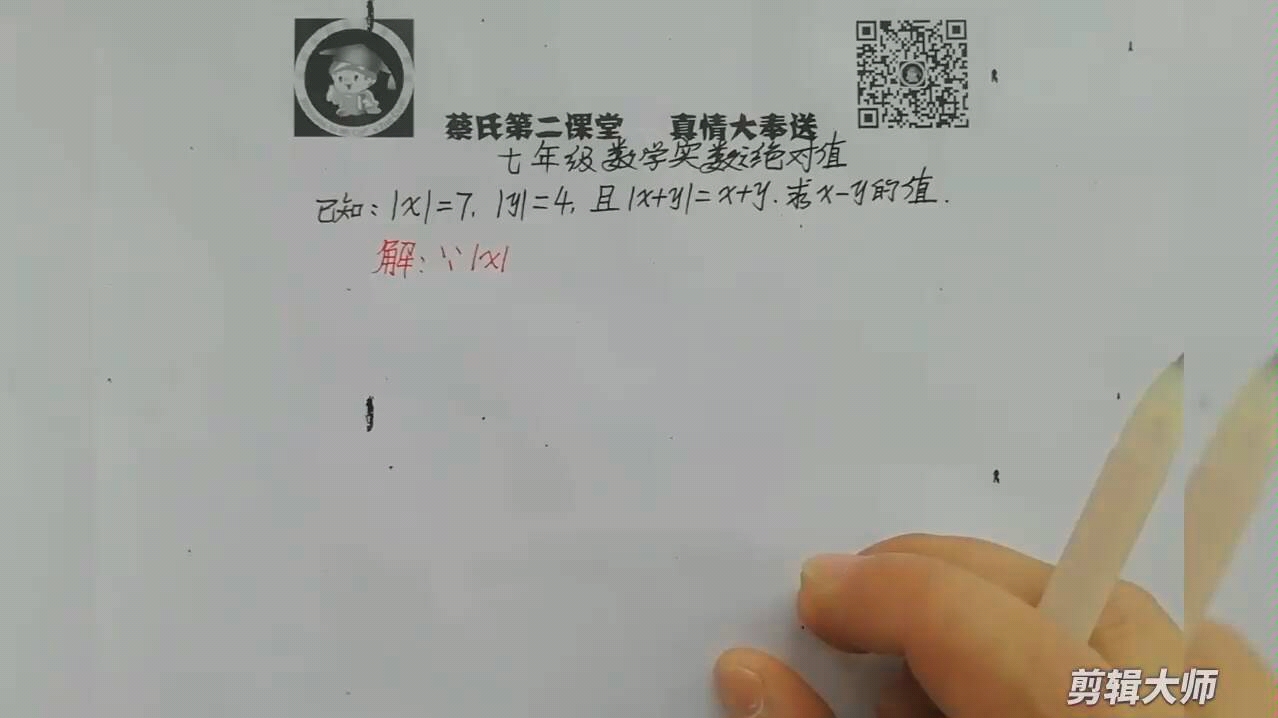 蔡氏第二课堂 真情大奉送
七年级数学实数之绝对值
已知：|x|=7，|y|=4，且|x+y|=x+y.求x-y的值.
解：∵|x|
剪辑大师